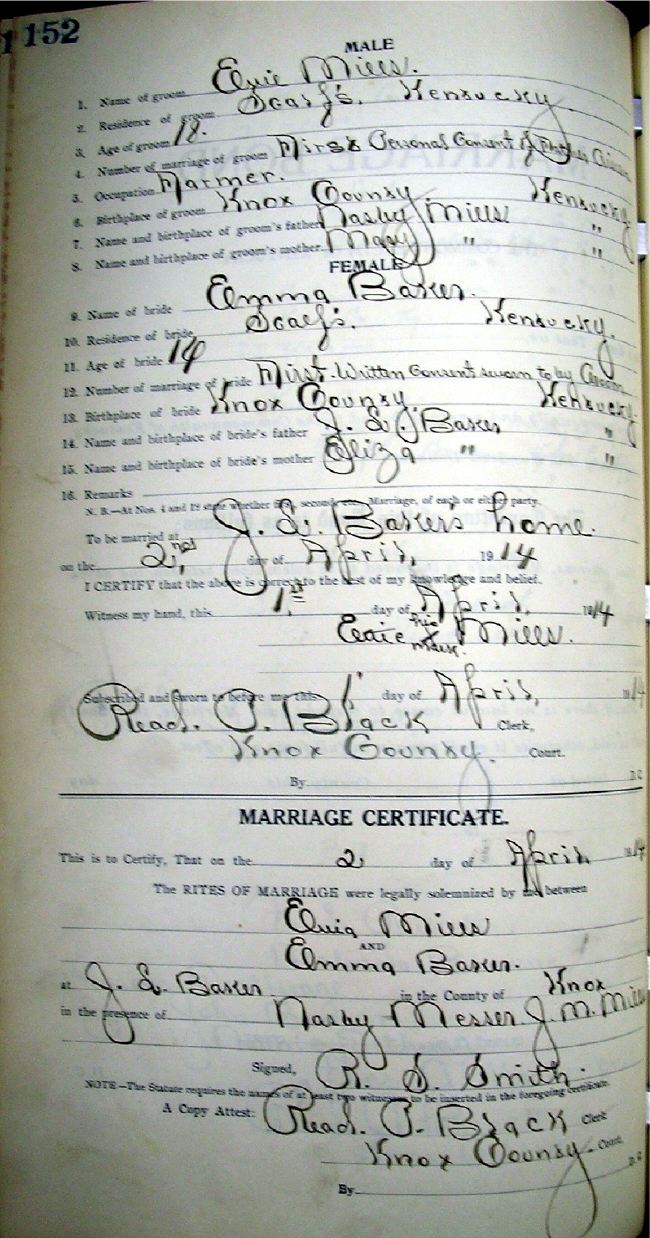 152
MALE
1. Name of groom Elvie Mills.
2. Residence of groom Scalf's, Kentucky
3. Age of groom 18.
4. Number of marriage of groom First Personal Consent of Father Given
5. Occupation Farmer.
6. Birthplace of groom Knox County Kentucky
7. Name and birthplace of groom's father Nasby Mills "
8. Name and birthplace of groom's mother Mary " "
FEMALE
9. Name of bride Emma Baker.
10. Residence of bride Scalf's. Kentucky.
11. Age of bride 14
12. Number of marriage of bride First. Written Consent sworn to by
13. Birthplace of bride Knox County Kentucky.
14. Name and birthplace of bride's father Baker "
15. Name and birthplace of bride's mother Eliza " "
16. Remarks
N. B.—At Nos. 4 and 12 state whether first, second, Marriage, of each or either party.
To be married at J. L. Baker's home.
on the 2nd day of April, 1914
I CERTIFY that the above is correct to the best of my knowledge and belief.
Witness my hand, this 1st day of April, 1914
Elvie his x mark. Mills.
Subscribed and sworn to before me this 1st day of April, 1914
Read. P. Black Clerk,
Knox County. Court.
By D. C.
MARRIAGE CERTIFICATE.
This is to Certify, That on the 2 day of April 1914
The RITES OF MARRIAGE were legally solemnized by me between
Elvie Mills
AND
Emma Baker.
at J. L. Baker in the County of Knox
in the presence of Nasby Messer. J. M. Mills
Signed, R. S. Smith.
NOTE—The Statute requires the names of at least two witnesses to be inserted in the foregoing certificate.
A Copy Attest: Read. P. Black Clerk
Knox County. Court.
By D. C.